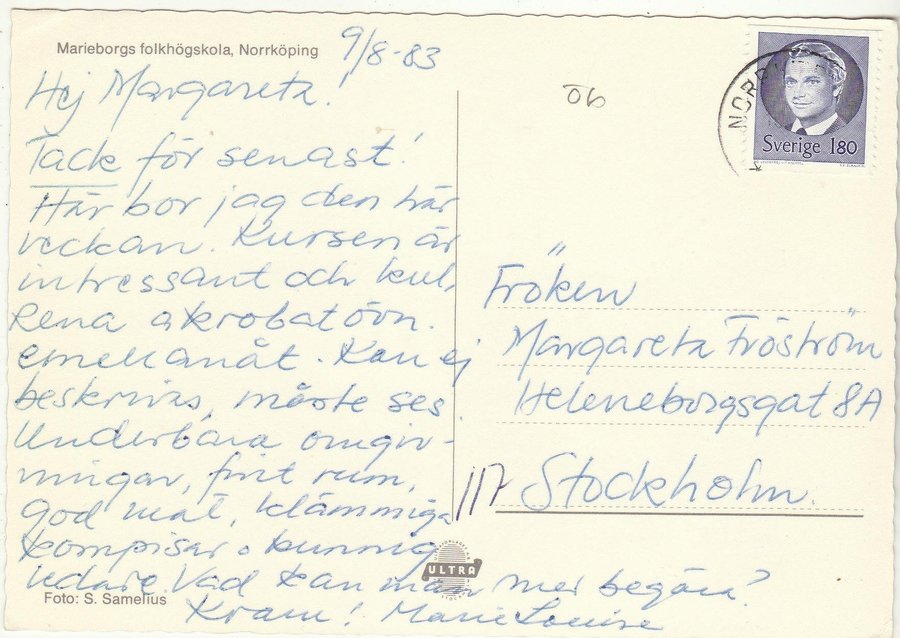 Marieborgs folkhögskola, Norrköping
9/8-83
Hej Margareta!
Tack för senast!
Här bor jag den här
veckan. Kursen är
intressant och kul,
Rena akrobatövn.
emellanåt. Kan ej
beskrivas, måste ses.
Underbara omgiv-
ningar, fint rum,
god mat, klämmiga
kompisar o kunnig
ledare. Vad kan man mer begära?
Kram! Marie Louise
Foto: S. Samelius
ULTRA
06
NORR
Sverige 180
Fröken
Margareta Fröström
Heleneborgsgat 8A
117 Stockholm.